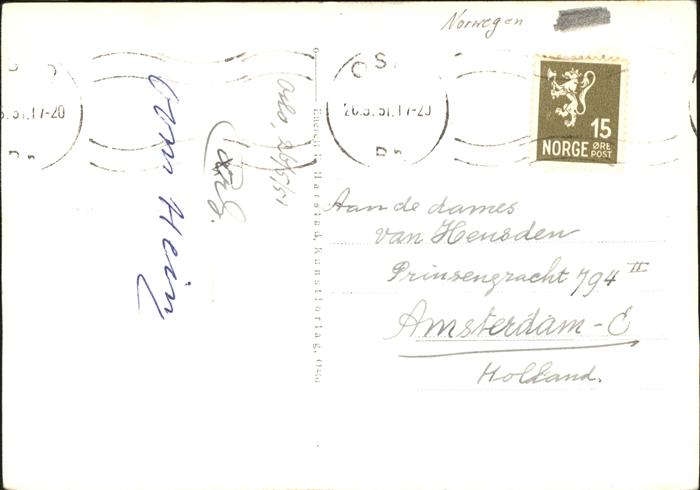 Norwegen
OS
26.5.51.17-20
15
NORGE ØRE
POST
Aan de dames
van Heusden
Prinsengracht 794 II
Amsterdam-C
Holland.
Oslo, 26/5/51
Harstad, Kunstforlag, Oslo
5.51.17-20